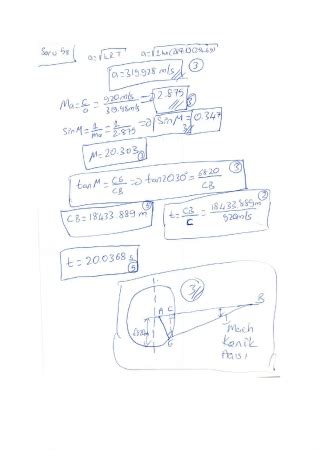 Soru 5:
a=√kRT a=√1.4×(287)(254.69)
a=319.928 m/s 3
Ma=c/a=920m/s/319.98m/s ⇒ 2.875
SinM=1/Ma=1/2.875 ⇒ SinM=0.347
M=20.303
tanM=CG/CB ⇒ tan20.30°=6820/CB 3
CB=18433.889 m
t=CB/C=18433.889m/920m/s
t=20.0368 s 5
3
A C B
G
Mach
Konik
Açısı